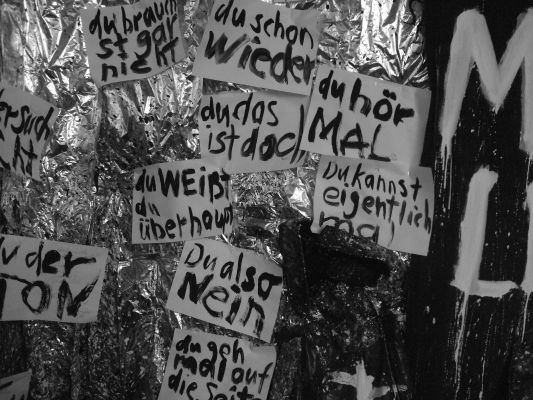 du brauch
st gar
nicht
du schon
wieder
du hör
MAL
du das
ist doch
du WEIßt
du
überhaupt
Du kannst
eigentlich
mal
du der
TON
Du also
Nein
du geh
mal auf
die Seite
M
L